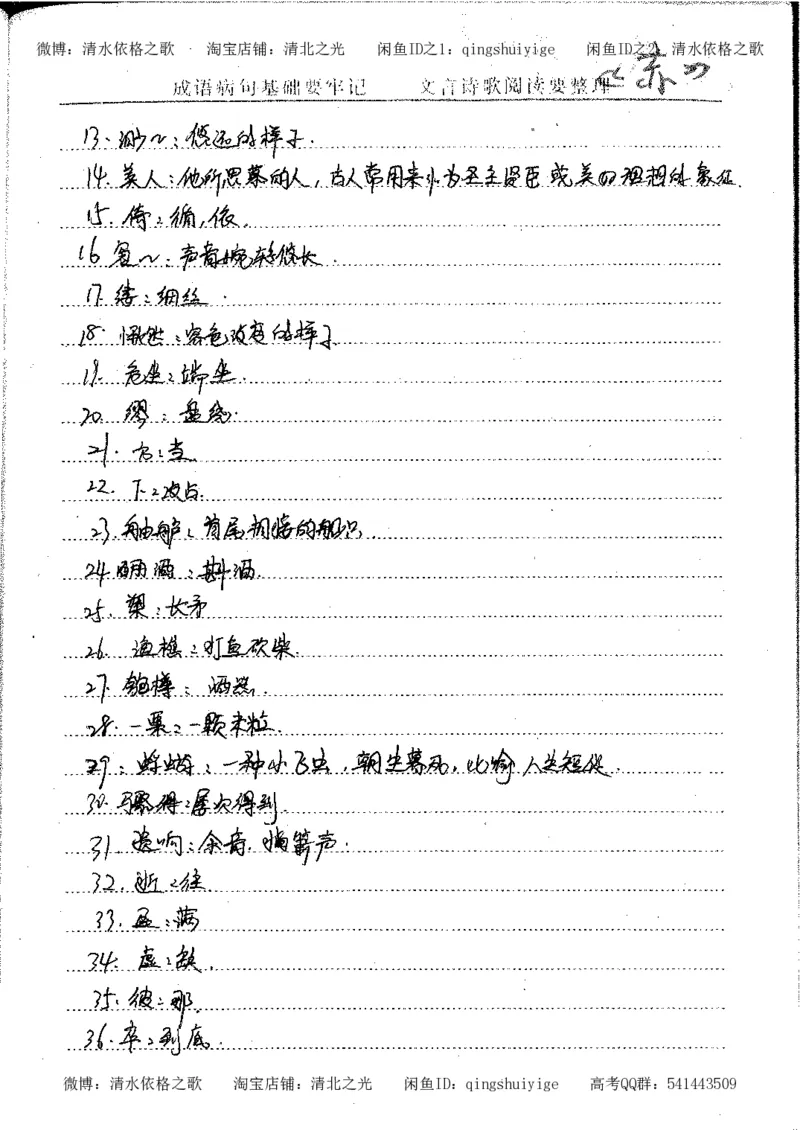 微博：清水依格之歌 · 淘宝店铺：清北之光 闲鱼ID之1：qingshuiyige 闲鱼ID之2：清水依格之歌
成语病句基础要牢记 文言诗歌阅读要整理
13. 渺~：悠远的样子.
14. 美人：他所思慕的人，古人常用来作为圣主贤臣或美好理想的象征.
15. 倚：循，依.
16 袅~：声音婉转悠长.
17. 缕：细丝.
18. 愀然：容色改变的样子.
19. 危坐：端坐.
20. 缪：盘绕.
21. 方：当.
22. 下：攻占.
23. 舳舻：首尾相接的船只.
24. 酾酒：斟酒.
25. 槊：长矛
26. 渔樵：打鱼砍柴.
27. 匏樽：酒器.
28. 一粟：一颗米粒.
29. 蜉蝣：一种小飞虫，朝生暮死，比喻人生短促.
30. 骤得：屡次得到.
31. 遗响：余音，指箫声.
32. 逝：往.
33. 盈：满
34. 虚：缺.
35. 彼：那.
36. 卒：到底.
微博：清水依格之歌 淘宝店铺：清北之光 闲鱼ID：qingshuiyige 高考QQ群：541443509